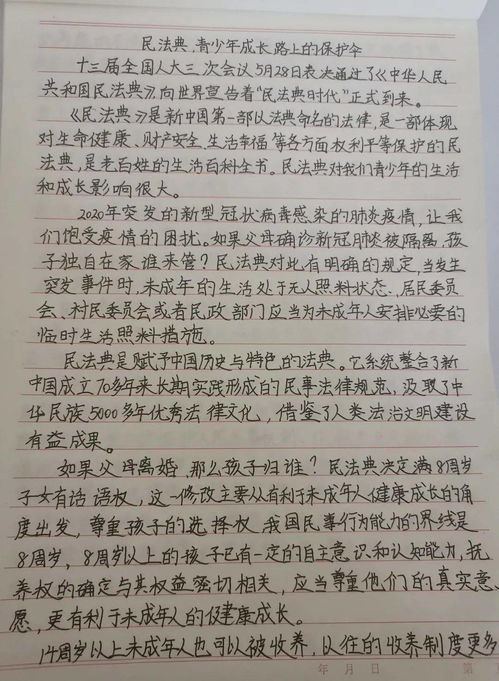 民法典,青少年成长路上的保护伞
十三届全国人大三次会议5月28日表决通过了《中华人民
共和国民法典》向世界宣告着“民法典时代”正式到来。
《民法典》是新中国第一部以法典命名的法律,是一部体现
对生命健康、财产安全、生活幸福等各方面权利平等保护的民
法典,是老百姓的生活百科全书。民法典对我们青少年的生活
和成长影响很大。
2020年突发的新型冠状病毒感染的肺炎疫情,让我
们饱受疫情的困扰。如果父母确诊新冠肺炎被隔离,孩
子独自在家谁来管?民法典对此有明确的规定,当发生
突发事件时,未成年的生活处于无人照料状态、居民委员
会、村民委员会或者民政部门应当为未成年人安排必要的
临时生活照料措施。
民法典是赋予中国历史与特色的法典。它系统整合了新
中国成立70多年来长期实践形成的民事法律规范,汲取了中
华民族5000多年优秀法律文化,借鉴了人类法治文明建设
有益成果。
如果父母离婚,那么孩子归谁?民法典决定满8周岁
子女有话语权,这一修改主要从有利于未成年人健康成长的角
度出发,尊重孩子的选择权,我国民事行为能力的界线是
8周岁,8周岁以上的孩子已有一定的自主意识和认知能力,抚
养权的确定与其权益密切相关,应当尊重他们的真实意
愿,更有利于未成年人的健康成长。
14周岁以上未成年人也可以被收养,以往的收养制度更多
年 月 日 第